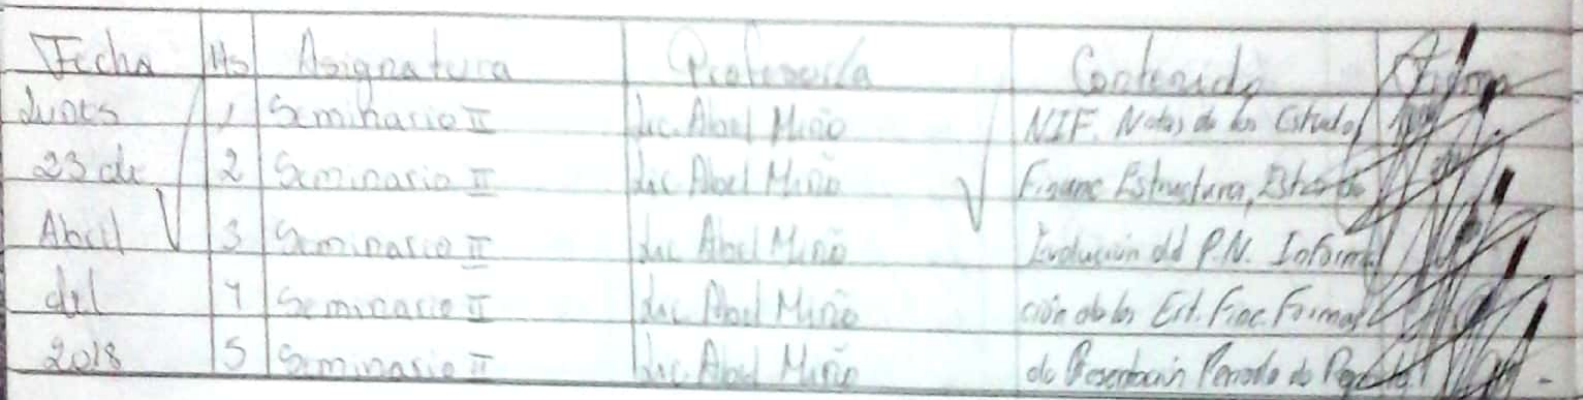 Fecha Hs Asignatura Profesor/a Contenido Firma
Lunes 1 Seminario II Lic. Abel Miño NIF. Notas de los Estados
23 de 2 Seminario II Lic. Abel Miño Estructura,
Abril 3 Seminario II Lic. Abel Miño Evolución del P.N. Informa
del 4 Seminario II Lic. Abel Miño ción de los Est. Finc. Formas
2018 5 Seminario II Lic. Abel Miño de Presentación Periodo de